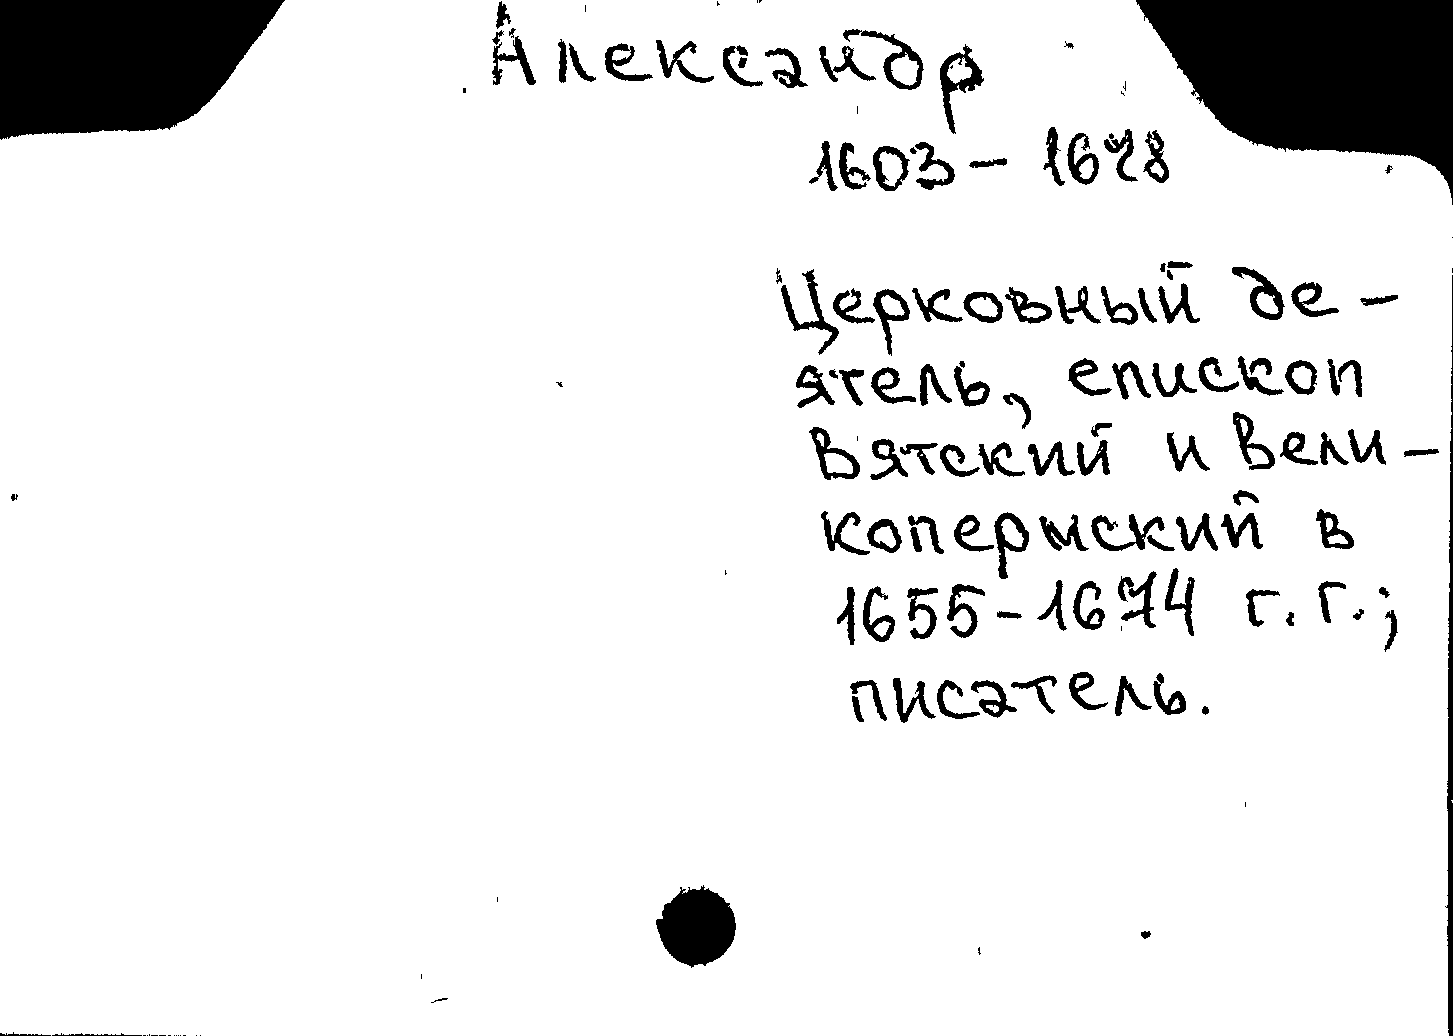 Александр
1603 – 1678
Церковный де-
ятель, епископ
Вятский и Вели-
копермский в
1655-1674 г. г.;
писатель.